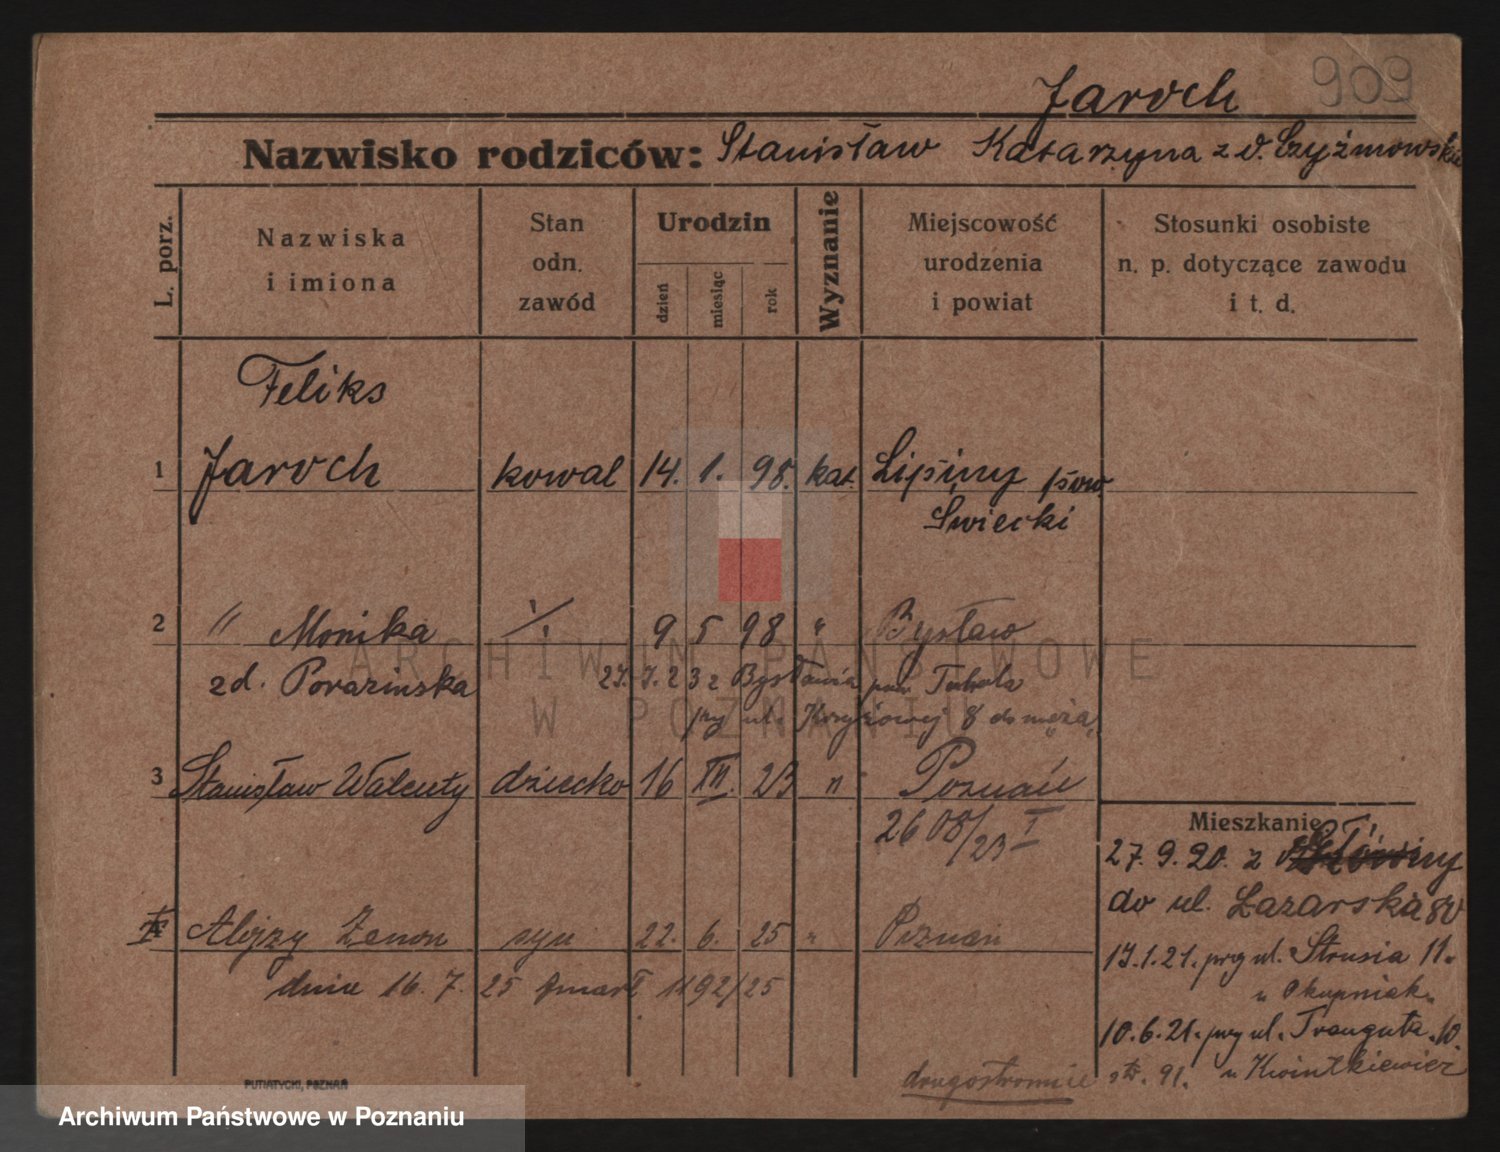 909
Jaroch
Nazwisko rodziców: Stanisław Katarzyna z d. Czyżmowskie
L. porz.
Nazwiska i imiona
Stan odn. zawód
Urodzin
dzień miesiąc rok
Wyznanie
Miejscowość urodzenia i powiat
Stosunki osobiste n. p. dotyczące zawodu i t. d.
Feliks
1 Jaroch kowal 14. 1. 98. kat. Lipiny pow.
Świecki
2 " Monika ./. 9 5 98 " Bysław
zd. Porazinska 27.7.23 z Bysławia pow. Tuchola
przy ul. Krzyżowej 8 do męża
3 Stanisław Walenty dziecko 16 XII. 23 " Poznań
2608/23 I
Mieszkanie
27. 9. 20. z
do ul. Łazarska 8
Alojzy Zenon syn 22. 6. 25 " Poznań
dnia 16. 7. 25 zmarł 1492/25
17.1.21. przy ul. Strusia 11.
u Okupniak
10.6.21. przy ul. Trauguta 10.
str. 91. u Kwintkiewicz
drugostronnie
PUTIATYCKI, POZNAŃ
ARCHIWUM PAŃSTWOWE
W POZNANIU
Archiwum Państwowe w Poznaniu